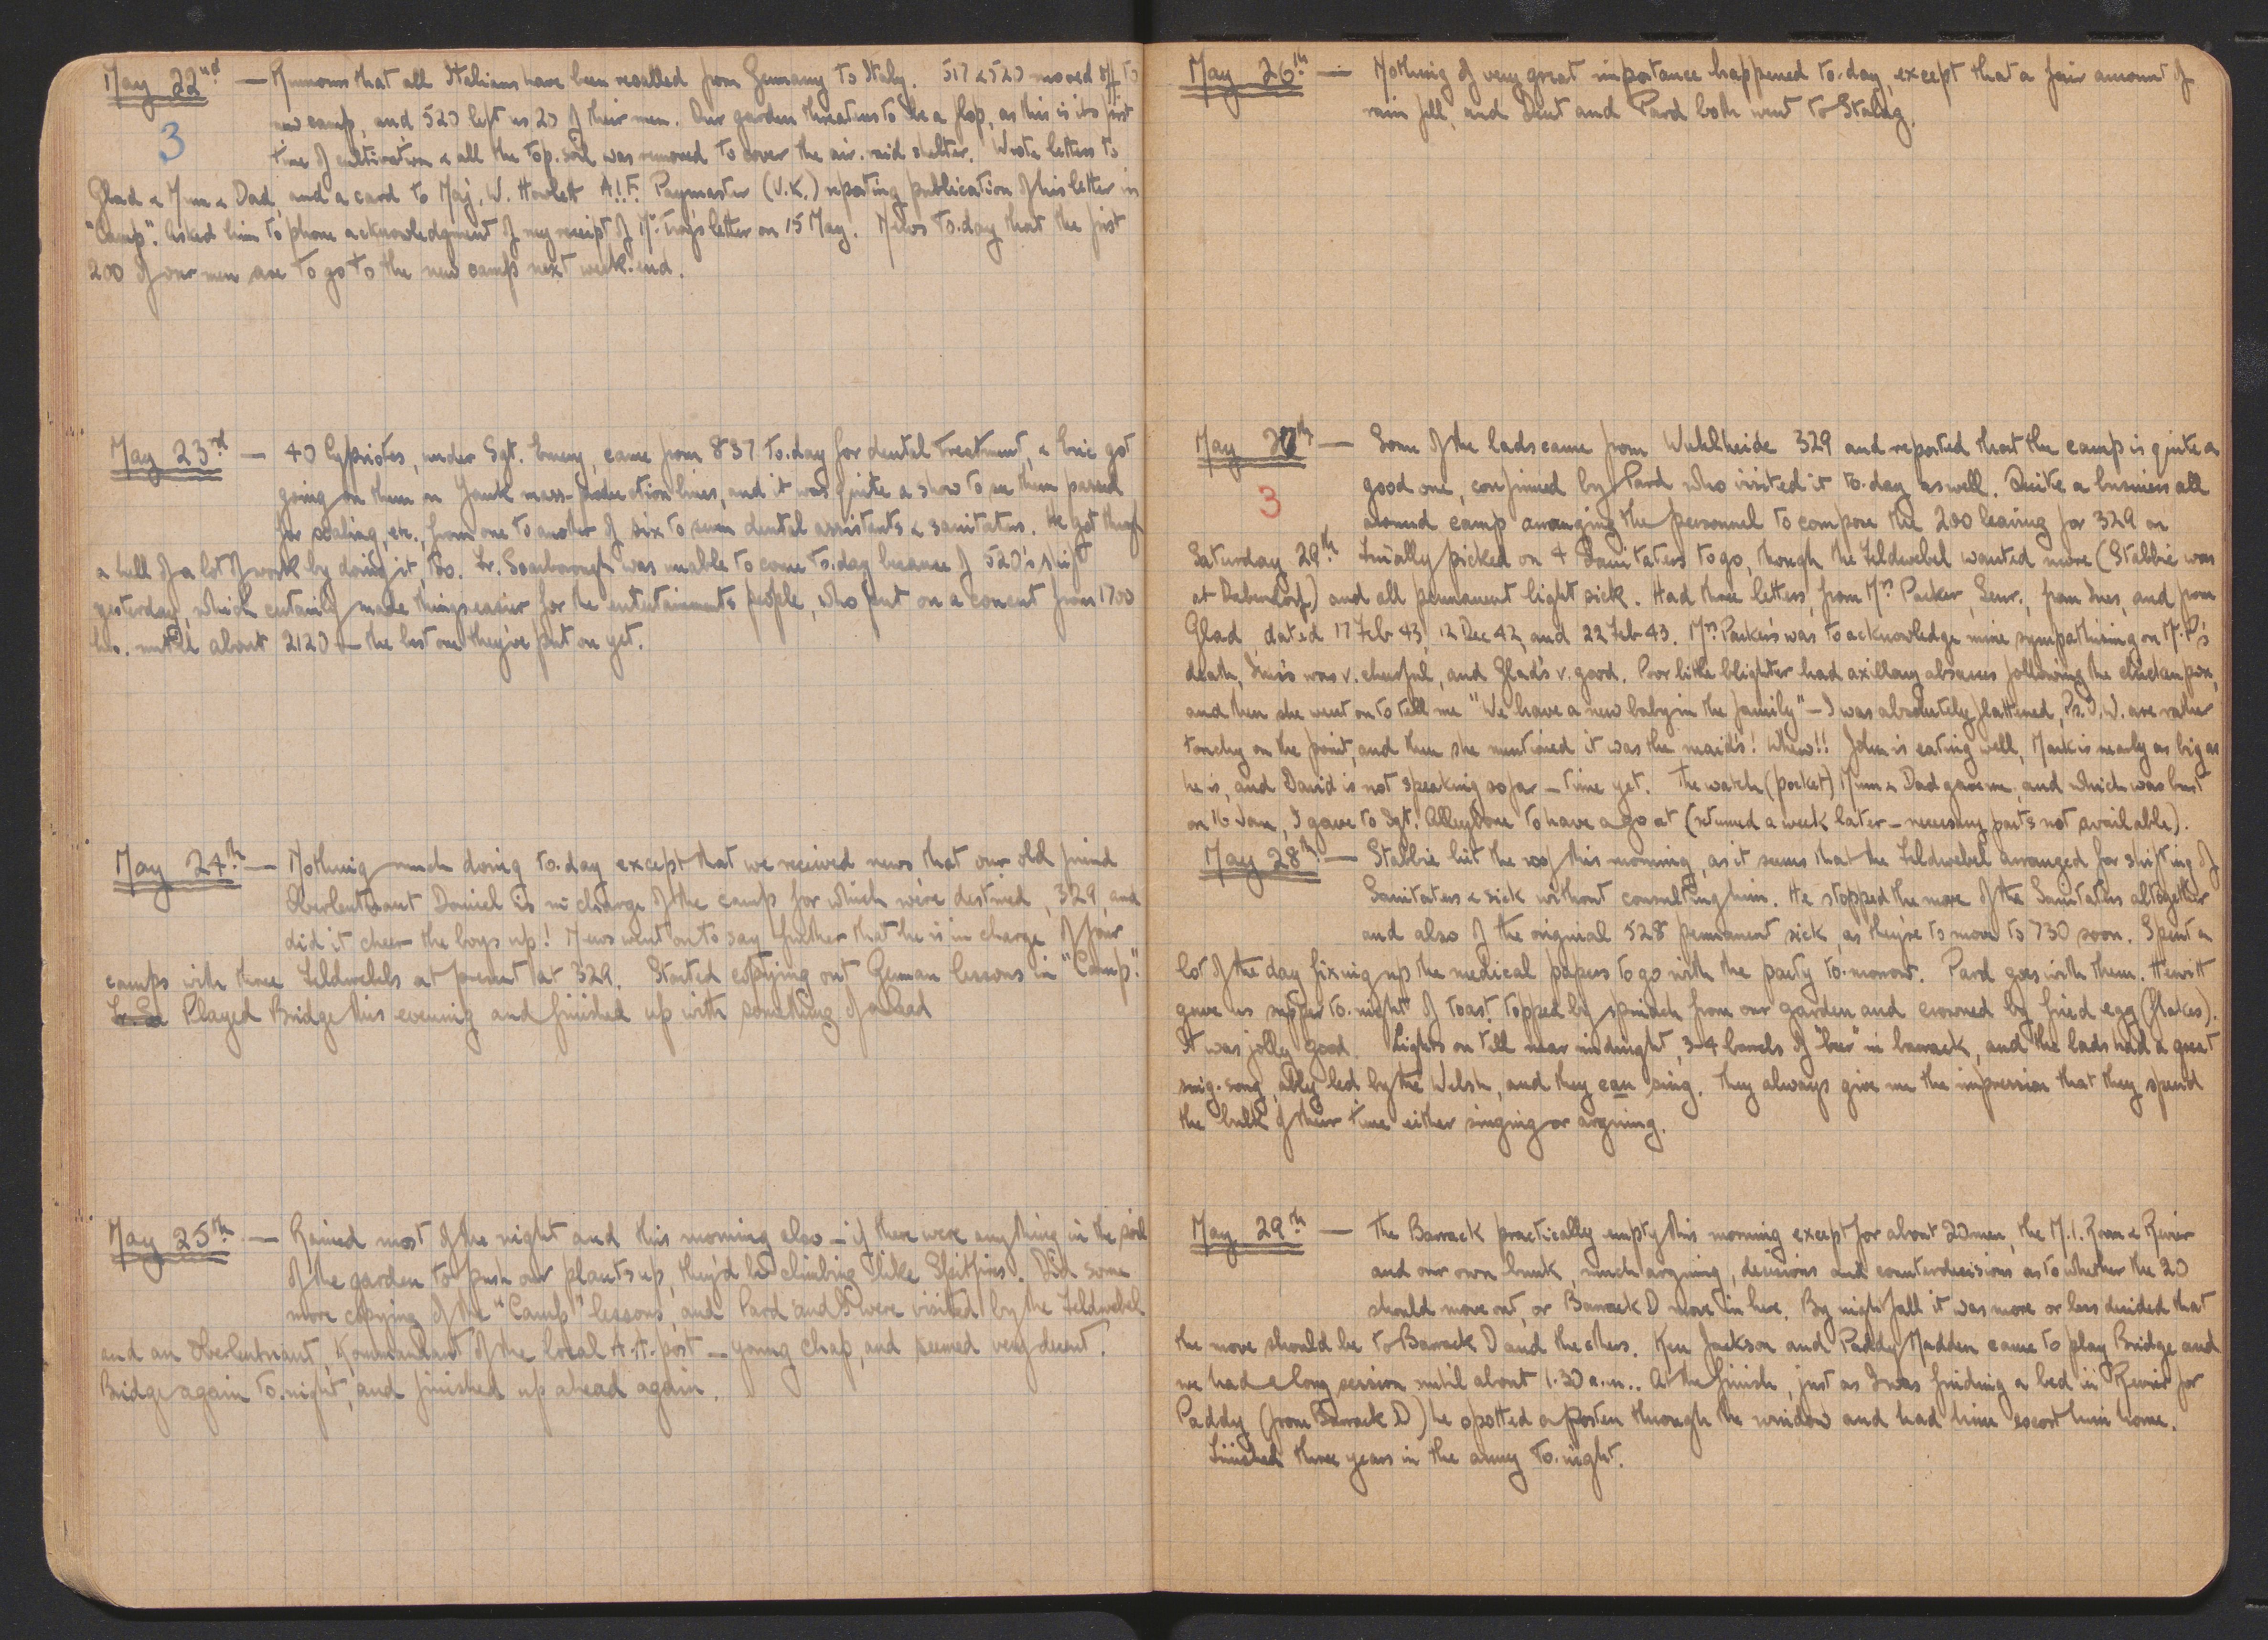 May 22nd — Rumours that all Italians have been recalled from Germany to Italy. 517 & 520 moved off to
3
new camp, and 520 left us 20 of their men. Our garden threatens to be a flop, as this is its first
time of cultivation & all the top-soil was removed to cover the air-raid shelter. Wrote letters to
Glad & Mum & Dad, and a card to Maj. W. Howlett A.I.F. Paymaster (U.K.) reporting publication of his letter in
"Camp". Asked him to phone acknowledgment of my receipt of letter on 15 May. News to-day that the first
200 of our men are to go to the new camp next week-end.
May 23rd — 40 Cypriotes, under Sgt. Emery, came from 837 to-day for dental treatment, & Eric got
going on them on Yank mass-production lines, and it was quite a show to see them passed
for scaling, etc., from one to another of six to seven dental assistants & sanitaters. He got through
a hell of a lot of work by doing it, too. Fr. Scarborough was unable to come to-day because of 520's shift
yesterday, which certainly made things easier for the entertainments people, who put on a concert from 1700
hrs. until about 2120 — the best one they've put on yet.
May 24th — Nothing much doing to-day except that we received news that our old friend
Oberleutnant Daniel is in charge of the camp for which we're destined, 329, and
did it cheer the boys up! News went on to say further that he is in charge of four
camps with three Feldwebels at present at 329. Started copying out German lessons in "Camp".
Fr. Sc Played Bridge this evening and finished up with something of a lead
May 25th — Rained most of the night and this morning also — if there were anything in the soil
of the garden to push our plants up, they'd be climbing like Spitfires. Did some
more copying of the "Camp" lessons, and Pard and I were visited by the Feldwebel
and an Oberleutnant, Kommandant of the local A.A. post — young chap, and seemed very decent.
Bridge again to-night, and finished up ahead again.
May 26th — Nothing of very great importance happened to-day, except that a fair amount of
rain fell, and Dent and Pard both went to Stalag.
May 27th — Some of the lads came from Wuhlheide 329 and reported that the camp is quite a
3
good one, confirmed by Pard who visited it to-day as well. Quite a business all
around camp arranging the personnel to compose the 200 leaving for 329 on
Saturday 29th. Finally picked on 4 Sanitaters to go, though the Feldwebel wanted more (Stabbie was
at Dabendorf) and all permanent light sick. Had three letters, from Mrs Packer, Senr., from Ines, and from
Glad, dated 17 Feb 43, 12 Dec 42, and 22 Feb 43. Mrs Packer's was to acknowledge mine sympathising on Mr. P's
death, Ines's was v. cheerful, and Glad's v. good. Poor little blighter had axillary abscesses following the chicken pox,
and then she went on to tell me "We have a new baby in the family" — I was absolutely flattened, Ps.O.W. are rather
touchy on the point, and then she mentioned it was the maid's! Whew!! John is eating well, Mark is nearly as big as
he is, and David is not speaking so far — time yet. The watch (pocket) Mum & Dad gave me, and which was bust
on 16 Jan, I gave to Sgt. Alleybone to have a go at (returned a week later — necessary parts not available).
May 28th — Stabbie hit the roof this morning, as it seems that the Feldwebel arranged for shifting of
Sanitaters & sick without consulting him. He stopped the move of the Sanitaters altogether
and also of the original 528 permanent sick, as they're to move to 730 soon. Spent a
lot of the day fixing up the medical papers to go with the party to-morrow. Pard goes with them. Hewitt
gave us supper to-night of toast topped by spinach from our garden and crowned by fried egg (flakes).
It was jolly good. Lights on till near midnight, 3-4 barrels of "beer" in barrack, and the lads had a great
sing-song, ably led by the Welsh, and they can sing. They always give me the impression that they spend
the bulk of their time either singing or arguing.
May 29th — The Barrack practically empty this morning except for about 20 men, the M.I. Room & Revier
and our own bunk, much arguing, decisions and counterdecisions as to whether the 20
should move out, or Barrack D move in here. By nightfall it was more or less decided that
the move should be to Barrack D and the others. Ken Jackson and Paddy Madden came to play Bridge and
we had a long session until about 1.30 a.m.. At the finish, just as I was finding a bed in Revier for
Paddy (from Barrack D) he spotted a Posten through the window and had him escort him home.
Finished three years in the army to-night.